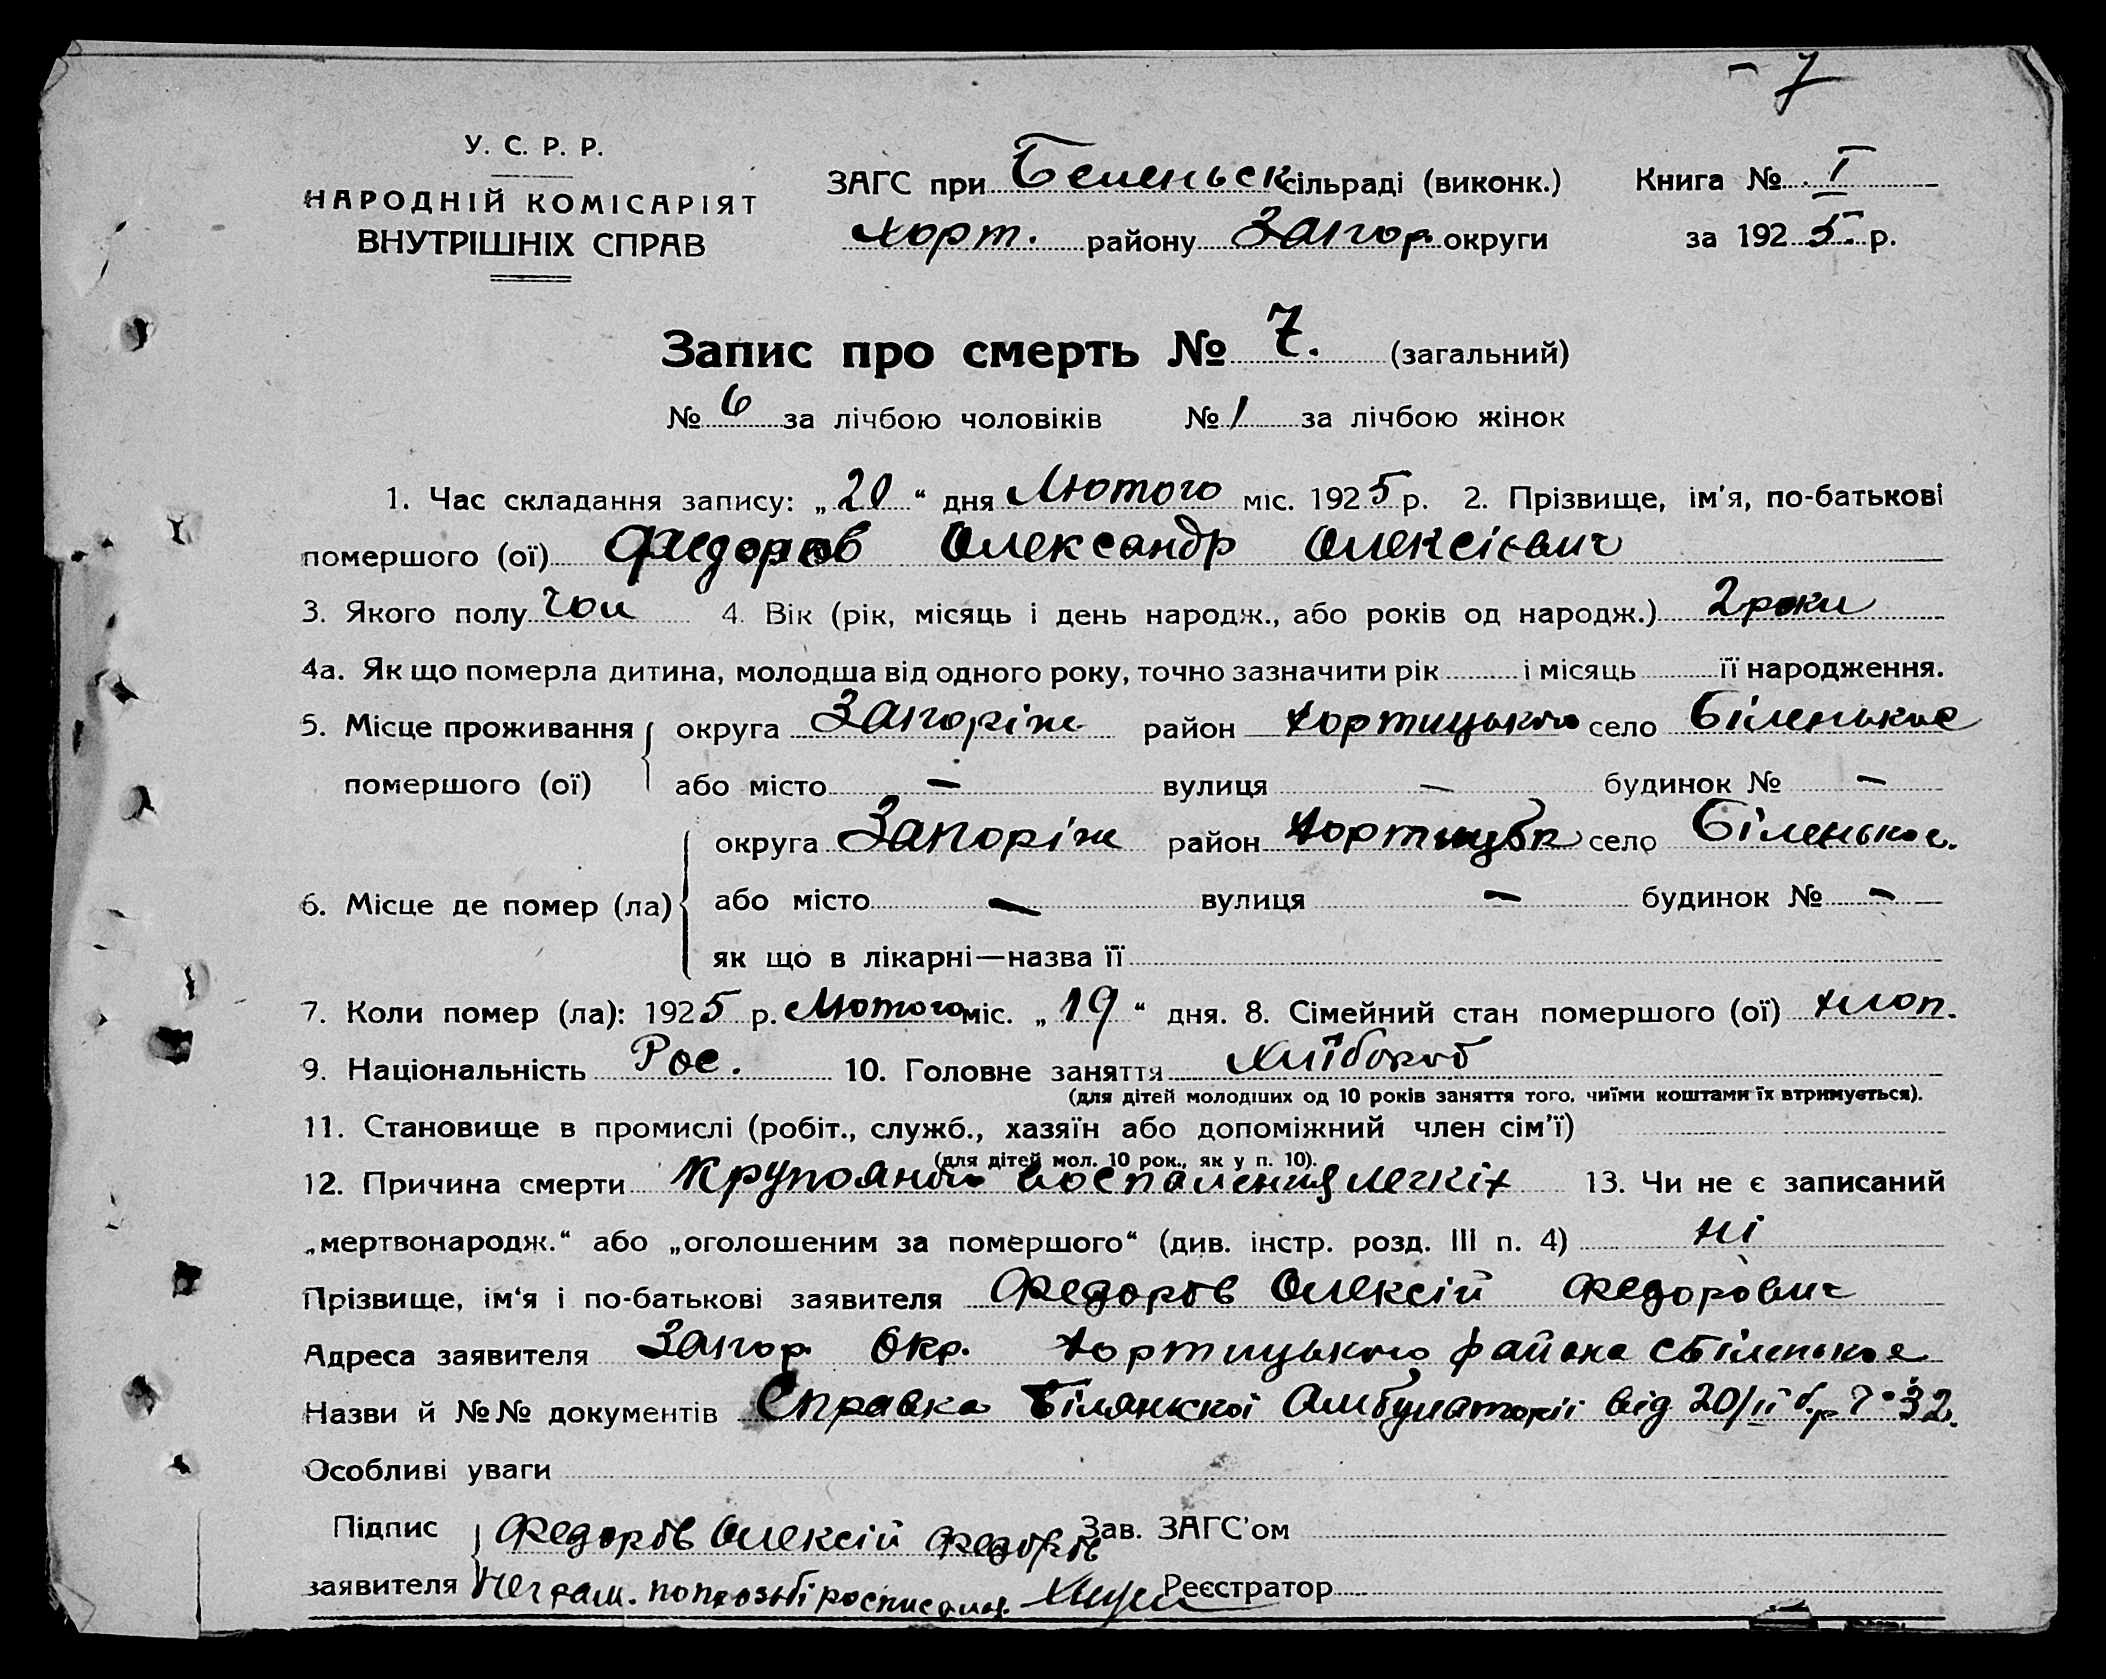 - 7
У. С. Р. Р.
НАРОДНІЙ КОМІСАРІЯТ
ВНУТРІШНІХ СПРАВ
ЗАГС при Беленьск сільраді (виконк.)
Хорт. району Запор. округи
Книга № I
за 1925 р.
Запис про смерть № 7. (загальний)
№ 6 за лічбою чоловіків № 1 за лічбою жінок
1. Час складання запису: „20“ дня Лютого міс. 1925 р. 2. Прізвище, ім'я, по-батькові
помершого (ої) Федоров Олександр Олексієвич
3. Якого полу чол 4. Вік (рік, місяць і день народж., або років од народж.) 2 роки
4а. Як що померла дитина, молодша від одного року, точно зазначити рік і місяць її народження.
5. Місце проживання округа Запоріж район Хортицького село Біленькое
помершого (ої) або місто — вулиця — будинок № —
округа Запоріж район Хортицьк село Біленькое.
6. Місце де помер (ла) або місто — вулиця — будинок № —
як що в лікарні—назва її
7. Коли помер (ла): 1925 р. Лютого міс. „19“ дня. 8. Сімейний стан помершого (ої) хлоп.
9. Національність Рос. 10. Головне заняття хлібороб
(для дітей молодших од 10 років заняття того, чиїми коштами їх втримується).
11. Становище в промислі (робіт., служб., хазяїн або допоміжний член сім'ї)
(для дітей мол. 10 рок., як у п. 10).
12. Причина смерти Крупояное воспаления легкіх 13. Чи не є записаний
„мертвонародж.“ або „оголошеним за помершого“ (див. інстр. розд. III п. 4) ні
Прізвище, ім'я і по-батькові заявителя Федоров Олексій Федорович
Адреса заявителя Запор. Окр. Хортицького района с Біленькое
Назви й №№ документів Справка Білянскої Амбулаторії від 20/II б.р. 32.
Особливі уваги
Підпис Федоров Олексій Федоров Зав. ЗАГС'ом
заявителя Неграм. по прозьбі росписался. Реєстратор